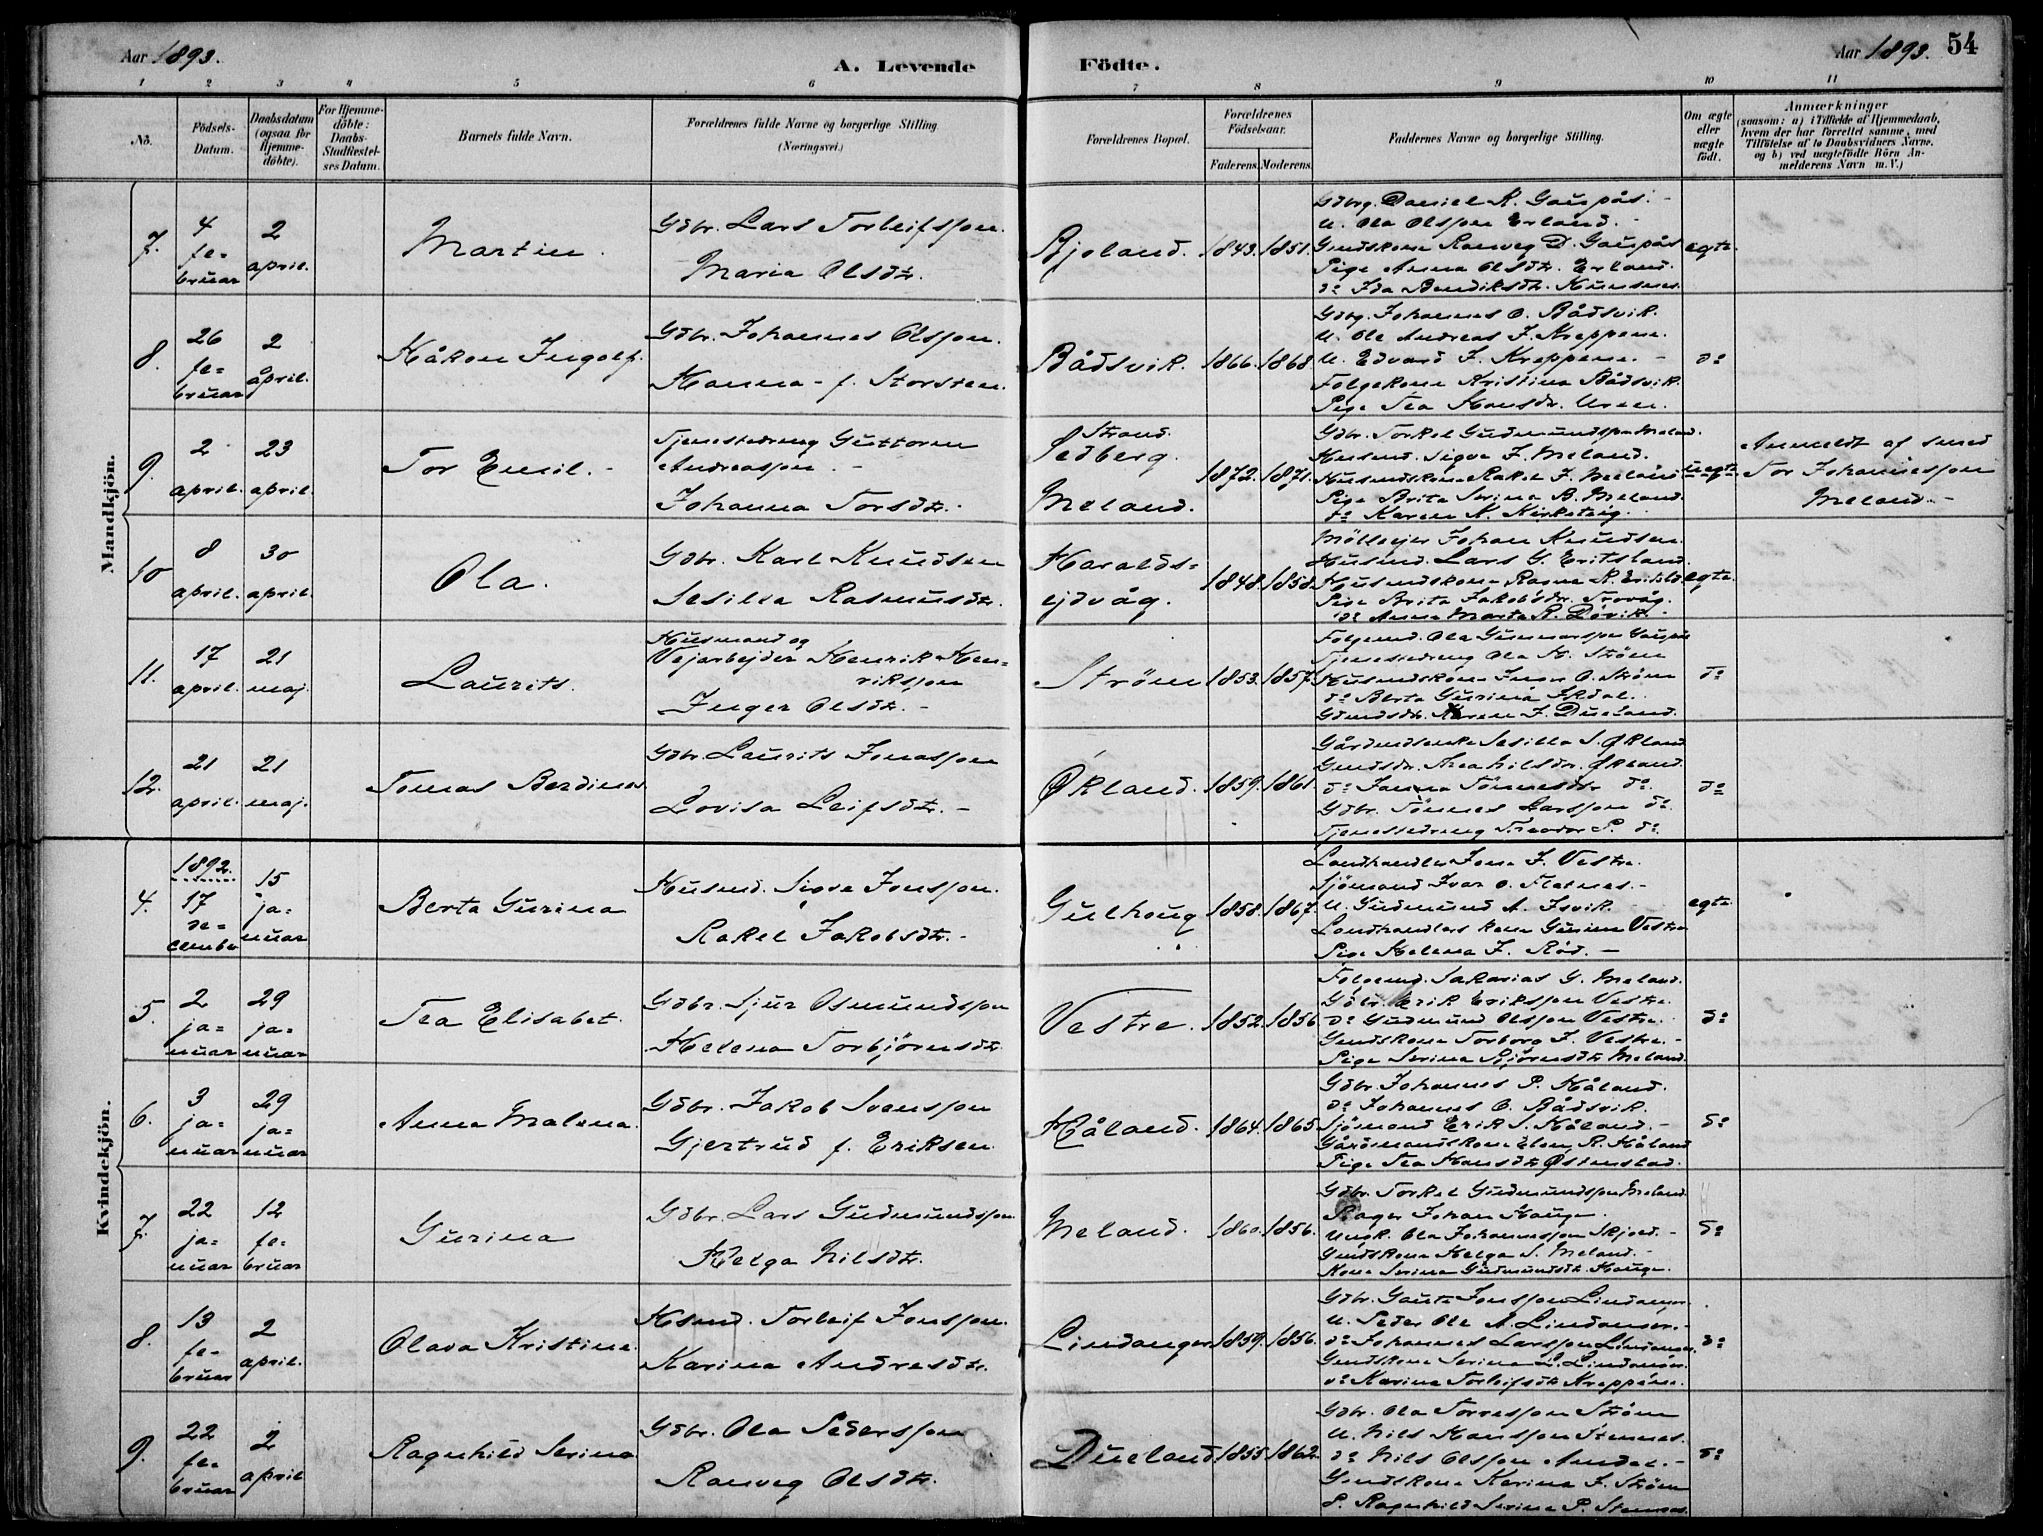 Aar 1893.
A. Levende
Födte.
Aar 1893. 54
1 2 3 4 5 6 7 8 9 10 11
No.
Födsels-Datum.
Daabsdatum (ogsaa for Hjemme-döbte).
For Hjemme-döbte: Daabs-Stadfæstel-ses Datum.
Barnets fulde Navn.
Forældrenes fulde Navne og borgerlige Stilling (Næringsvei.)
Forældrenes Bopæl.
Forældrenes Födselsaar.
Faderens. Moderens.
Faddernes Navne og borgerlige Stilling.
Om ægte eller uægte födt.
Anmærkninger
(saasom: a) i Tilfælde af Hjemmedaab,
hvem der har forrettet samme, med
Tilföielse af to Daabsvidners Navne,
og b) ved uægtefödte Börn An-
melderens Navn m. V.)
Mandkjön.
7. 4 fe-bruar 2 april. Martin.
Gdbr. Lars Torleifsson.
Maria Olsdtr.
Bjoland. 1843. 1851.
Gdbrg. Daniel K. Gaupås. -
U. Ola Olsson Erland. -
Gmdskone Ranveg D. Gaupås
Pige Anna Olsdtr. Erland.
do Ida Bendiksdtr.
egte.
8. 26 fe-bruar 2 april. Håkon Ingolf.
Gdbr. Johannes Olsson.
Hanna - f. Storsten.
Bådsvik. 1866. 1868
Gdbrg. Johannes O. Bådsvik.
U. Ole Andreas J. Kreppene.
U. Edvard J. Kreppene. -
Folgekone Kristina Bådsvik.
Pige Tea Hansdtr.
do
9. 2 april. 23 april. Tor Emil. -
Tjenestedreng Guttorm
Andreasson. -
Johanna Torsdtr. -
Strand.
Sedberg.
Meland.
1872. 1871.
Gdbr. Torkel Gudmundsson Meland.
Husmd. Sigve J. Meland.
Husmdskone Rakel J. Meland
Pige Brita Serina B. Meland
do Karen N. Kirketeig.
uegte
Anmeldt af smed
Tor Johannesson
Meland. -
10 8 april. 30 april. Ola.
Gdbr. Karl Knudsen
Sesilia Rasmusdtr.
Haralds-
ejdvåg.
1848. 1858.
Mölleejer Johan Knudsen
Husmd. Lars G. Eritsland
Husmdskone
Pige Brita Jakobsdtr.
do Anna Marta R.
egte.
11. 17 april. 21 maj. Laurits.
Husmand og
Vejarbejder Henrik Hen-
riksson
Inger Olsdtr. -
Ström 1853. 1857.
Folgemd. Ola Gunnarsson Gaupås
Tjenestedreng Ola H. Ström
Husmdskone O. Ström
do Berta Gurina
Gdmdsdtr. Karen J. Dueland.
do
12. 21 april. 21 maj. Tomas Berdines
Gdbr. Laurits Jonasson
Lovisa Leifsdtr. -
Økland. 1859. 1861.
Gårdmdsenke Sesilia S. Økland
Gmdsdtr. Nilsdtr. Økland
do Janna Tönnesdtr. do
Gdbr. Tönnes Larsson do.
Tjenestedreng Theodor P. do.
do
Kvindekjön.
4. 1892. 17 de-cember 15 ja-nuar Berta Gurina
Husmd. Sigve Jonsson.
Rakel Jakobsdtr. -
Gulhaug 1858. 1867.
Landhandler Jone J. Vestre.
Sjömand Ivar O. Flatnes. -
U. Gudmund A. Isvik. -
Landhandlers kone Gurina Vestre
Pige Helena J. Röd. -
egte
5. 2 ja-nuar 29 ja-nuar Tea Elisabet.
Gdbr. Sjur Osmundsson
Helena Torbjörnsdtr.
Vestre. 1852. 1856
Folgemd. Sakarias G. Meland.
Gdbr. Erik Eriksson Vestre.
do Gudmund Olsson Vestre.
Gmdskone Torborg J. Vestre. -
Pige Serina Bjørnsdtr. Meland.
do
6. 3 ja-nuar 29 ja-nuar Anna Malena.
Gdbr. Jakob Svensson
Gjertrud f. Eriksen.
Håland. 1864. 1865
Gdbr. Johannes P. Håland.
do Johannes O. Bådsvik.
Sjömand Erik S. Håland. -
Gårdmandskone Elen R. Håland
Pige Tea Hansdtr Østenstad.
do
7. 22 ja-nuar 12 fe-bruar Gurina
Gdbr. Lars Gudmundsson
Helga Nilsdtr.
Meland. 1860. 1856.
Gdbr. Torkel Gudmundsson Meland
Bager Johan Hauge.
Ungk. Ola Johannesson Skjold. -
Gmdskone Helga S. Meland. -
Kone Serina Gudmundsdtr. Hauge.
do
8. 13 fe-bruar 2 april. Olava Kristine.
Husmd. Torleif Jonsson.
Karina Andresdtr.
Lindanger 1859. 1856.
Gdbr. Gaute Jonsson Lindanger.
U. Peder Ole A. Lindanger. -
do Johannes Larsson Lindanger.
Gmdskone Serina L. Lindanger.
do Karina Torleifsdtr. Kreppene.
do
9. 22 fe-bruar 2 april Ragnhild Serina
Gdbr. Ola Pedersson
Ranveg Olsdtr.
Dueland 1855 1862
Gdbr. Ola Torresson Ström
U. Nils Hansson Stemnes.
do Nils Olsson -
Gmdskone Karina J. Ström
P. Ragnhild Serina P. Stemnes.
do